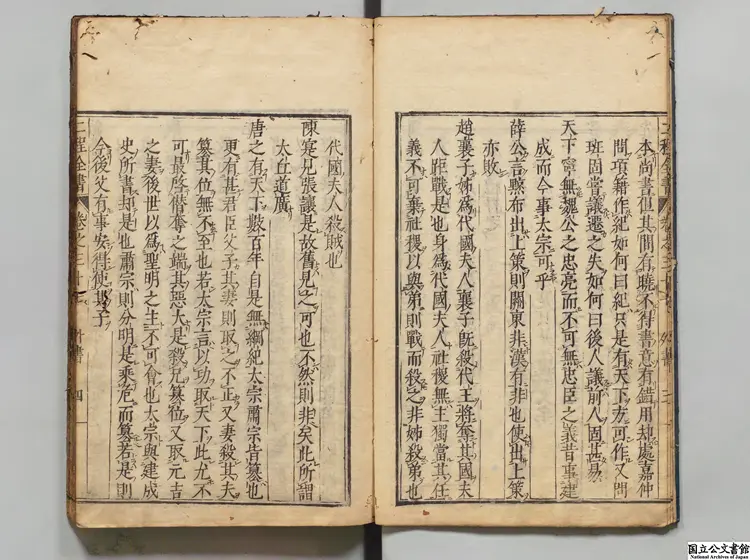 本尚書但其間有曉不得書意有錯用却處嘉仲
問項籍作紀如何曰紀只是有天下方可作又問
班固嘗議遷之失如何曰後人議前人固甚易
天下寧無魏公之忠亮而不可無忠臣之義昔事建
成而今事太宗可乎
薛公言黥布出上策則關東非漢有非也使出上策
亦敗
趙襄子姊為代國夫人襄子旣殺代王將奪其國夫
人距戰是也身為代國夫人社稷無主獨當其任
義不可棄社稷以與弟則戰而殺之非姊殺弟也
二程全書
代國夫人殺賊也
陳寔見張讓是故舊見之可也不然則非矣此所謂
太丘道廣
唐之有天下數百年自是無綱紀太宗肅宗皆篡也
更有甚君臣父子其妻則取之不正又妻殺其夫
篡其位無不至也若太宗言以功取天下此尤不
可最啓僭奪之端其惡大是殺兄篡位又取元吉
之妻後世以為聖明之主不可會也太宗與建成
史所書却是也肅宗則分明是乘危而篡若是則
今後父有事安得使其子
二程全書 卷之三十 外書 四
国立公文書館
National Archives of Japan